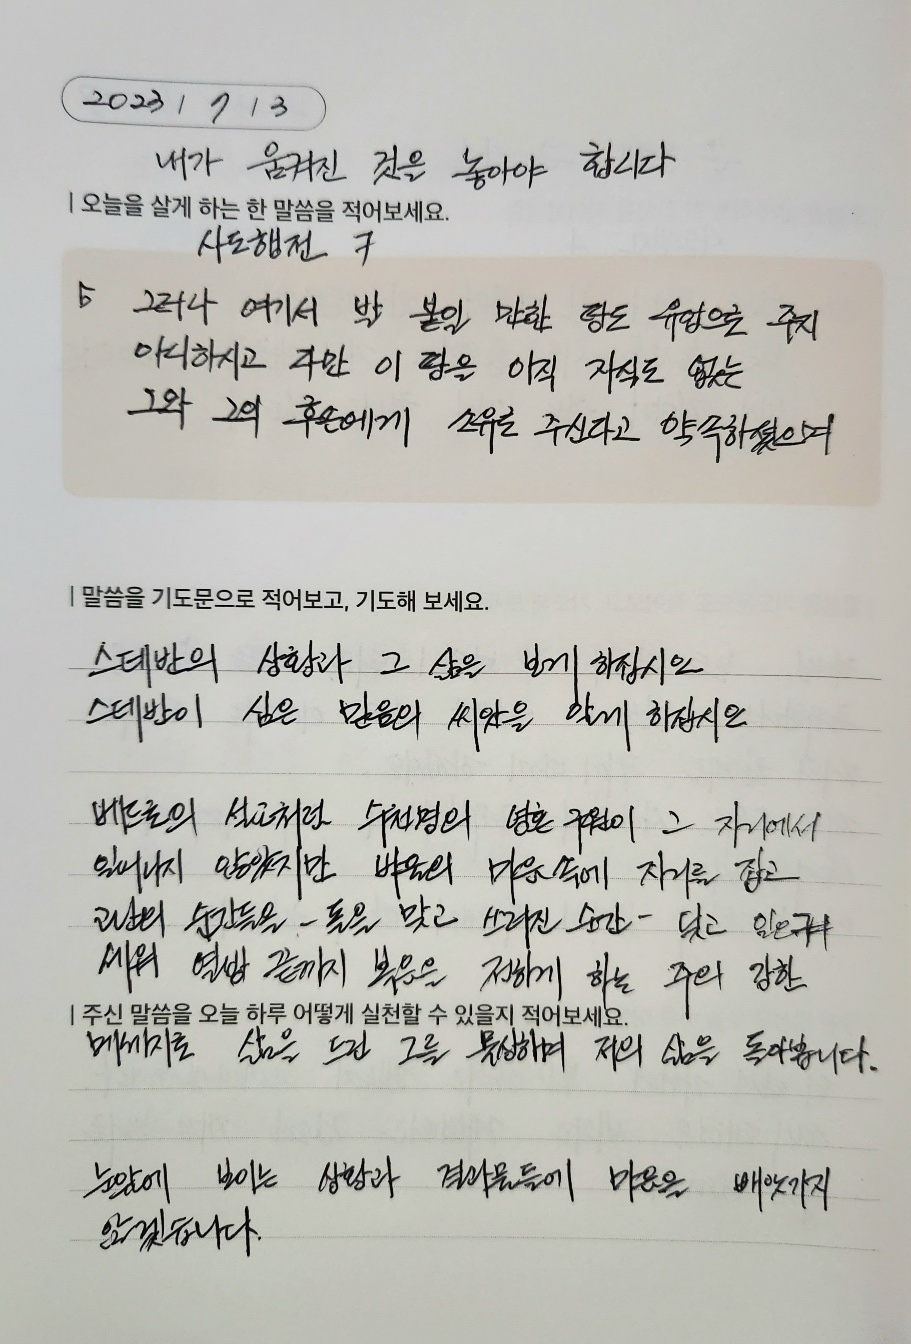 2023 / 7 / 3
내가 움켜진 것을 놓아야 합니다
| 오늘을 살게 하는 한 말씀을 적어보세요.
사도행전 7
5 그러나 여기서 발 붙일 만한 땅도 유업으로 주지
아니하시고 다만 이 땅을 아직 자식도 없는
그와 그의 후손에게 소유로 주신다고 약속하셨으며
| 말씀을 기도문으로 적어보고, 기도해 보세요.
스데반의 상황과 그 삶을 보게 하십시오
스데반이 심은 믿음의 씨앗을 알게 하십시오
베드로의 설교처럼 수천명의 영혼 구원이 그 자리에서
일어나지 않았지만 바울의 마음속에 자리를 잡고
고난의 순간들을 - 돌을 맞고 쓰러진 순간 - 딪고
세워 열방 끝까지 복음을 전하게 하는 주의 강한
| 주신 말씀을 오늘 하루 어떻게 실천할 수 있을지 적어보세요.
메세지로 삶을 드린 그를 묵상하며 저의 삶을 돌아봅니다.
눈앞에 보이는 상황과 결과물들에 마음을 빼앗기지
않겠습니다.